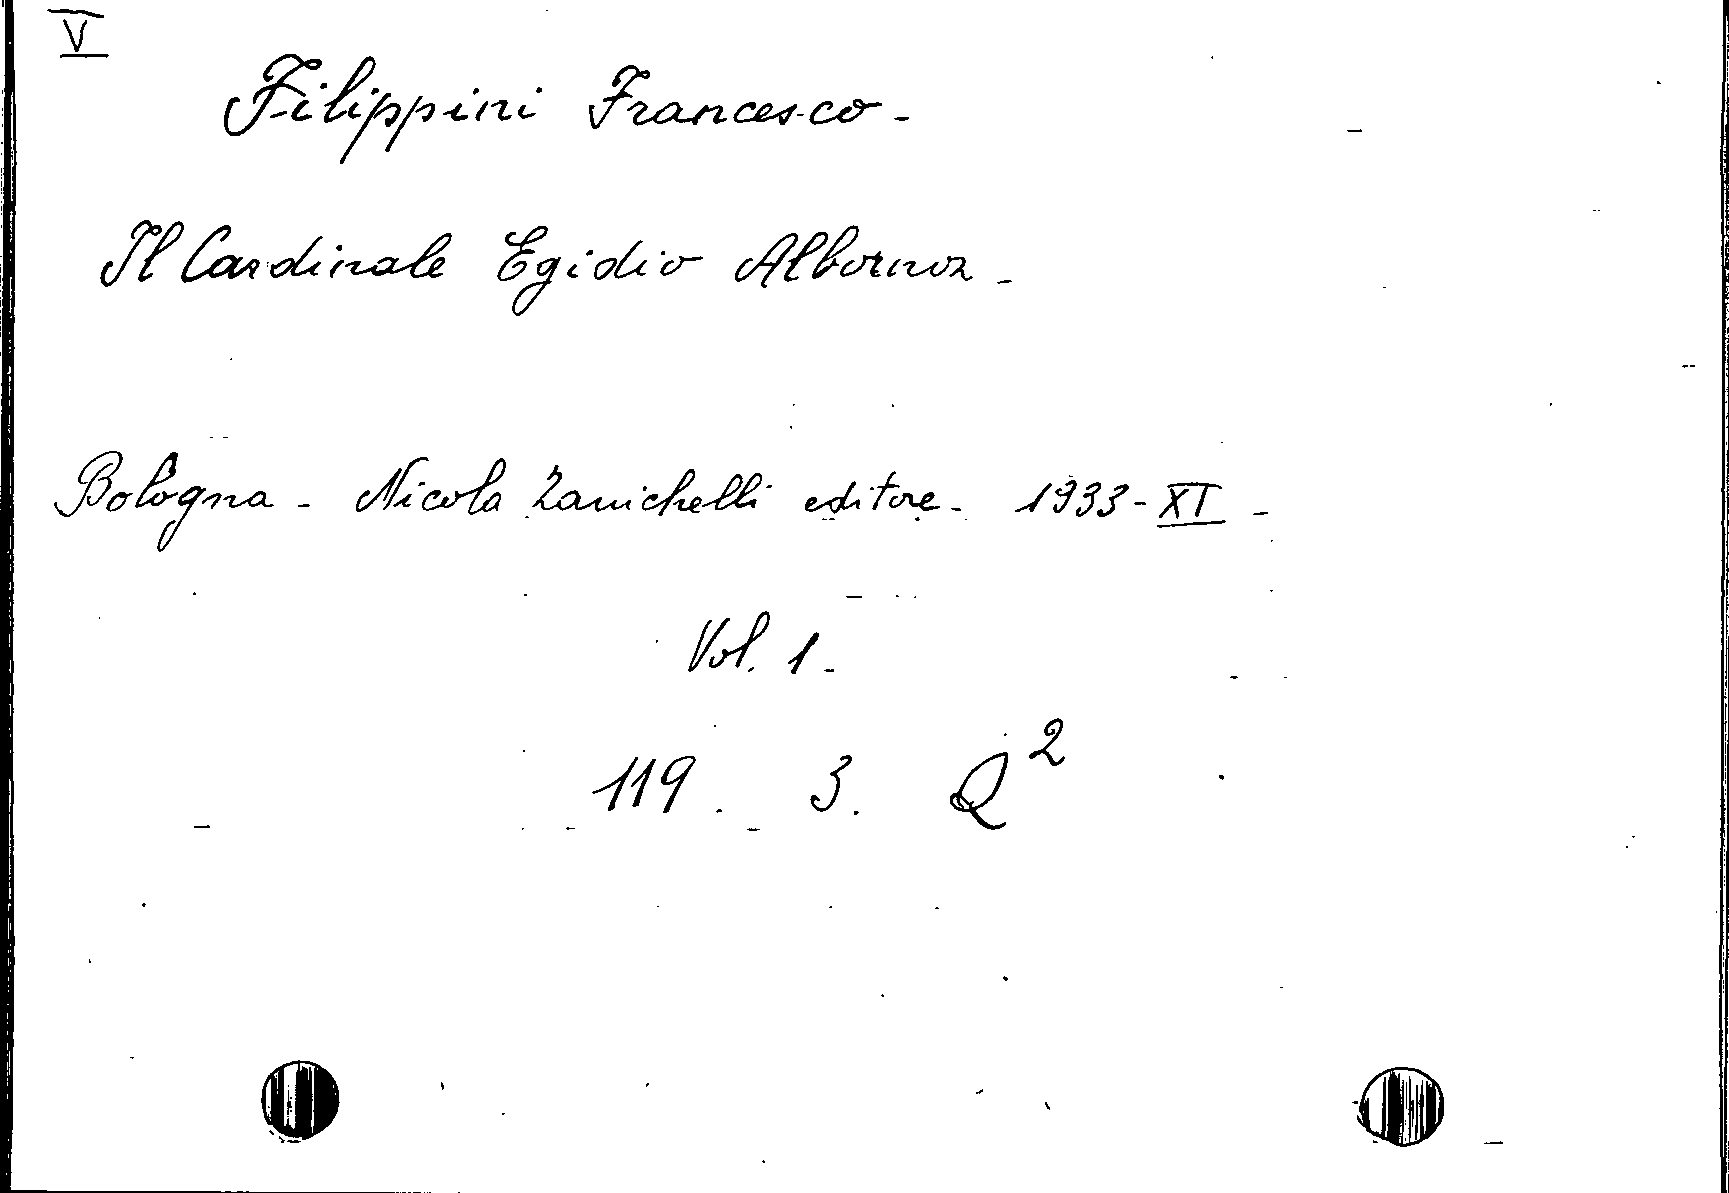 V
Filippini Francesco -
Il Cardinale Egidio Albornoz -
Bologna - Nicola Zanichelli editore - 1933 - XI -
Vol. 1 -
119. 3. Q²